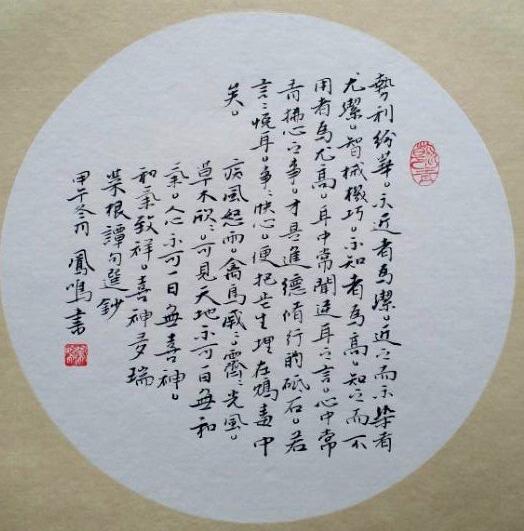 勢利紛華。不近者為潔。近之而不染者
尤潔。智械機巧。不知者為高。知之而不
用者為尤高。耳中常聞逆耳之言。心中常
有拂心之事。才是進德脩行的砥石。若
言〻悅耳。事〻快心。便把此生埋在鴆毒中
矣。 疾風怒雨。禽鳥戚〻。霽日光風。
草木欣〻。可見天地不可一日無和
氣。人心不可一日無喜神。
和氣致祥。喜神多瑞
菜根譚句選鈔
甲午冬月 鳳鳴書